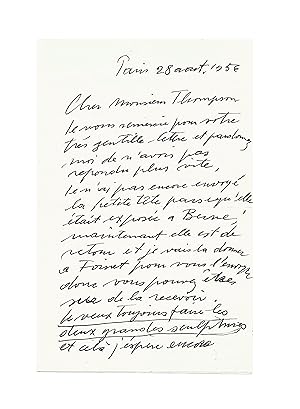 Paris 28 aout, 1956
Cher Monsieur Thompson
Je vous remercie pour votre
très gentille lettre et pardonnez
moi de n'avoir pas
repondu plus vite,
Je n'ai pas encore envoyé
la petite tête parsqu'elle
était exposée a Berne,
maintenant elle est de
retour et je vais la donner
a Foinet pour vous l'envoyer
donc vous pouvez êtres
sur de la recevoir.
Je veux toujours faire les
deux grandes sculptures
et cela j'espere encore